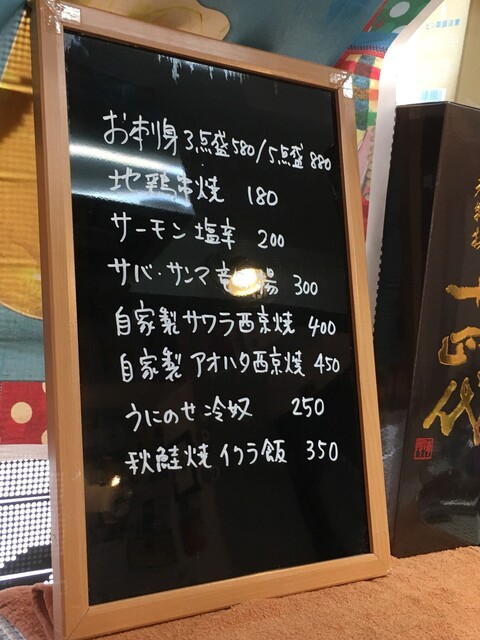 お刺身3点盛580/5点盛880
地鶏串焼 180
サーモン塩辛 200
サバ・サンマ竜 揚 300
自家製サワラ西京焼 400
自家製アオハタ西京焼 450
うにのせ冷奴 250
秋鮭焼イクラ飯 350
十四代